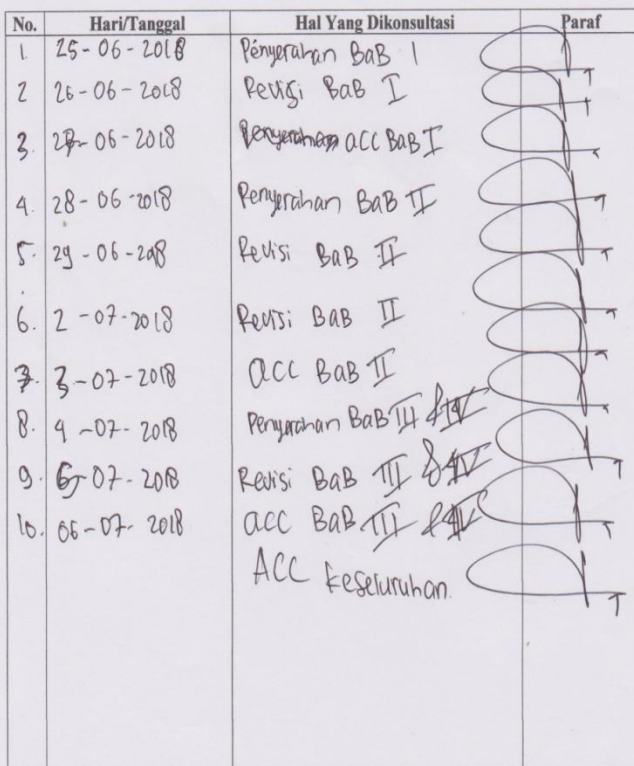 No. Hari/Tanggal Hal Yang Dikonsultasi Paraf
1 25-06-2018 Penyerahan BaB I
2 26-06-2018 Revisi BaB I
3. 27-06-2018 Penyerahan acc BaB I
4. 28-06-2018 Penyerahan BaB II
5. 29-06-2018 Revisi BaB II
6. 2-07-2018 Revisi BaB II
7. 3-07-2018 acc BaB II
8. 4-07-2018 Penyerahan BaB III & IV
9. 5-07-2018 Revisi BaB III & IV
10. 06-07-2018 acc BaB III & IV
ACC keseluruhan.